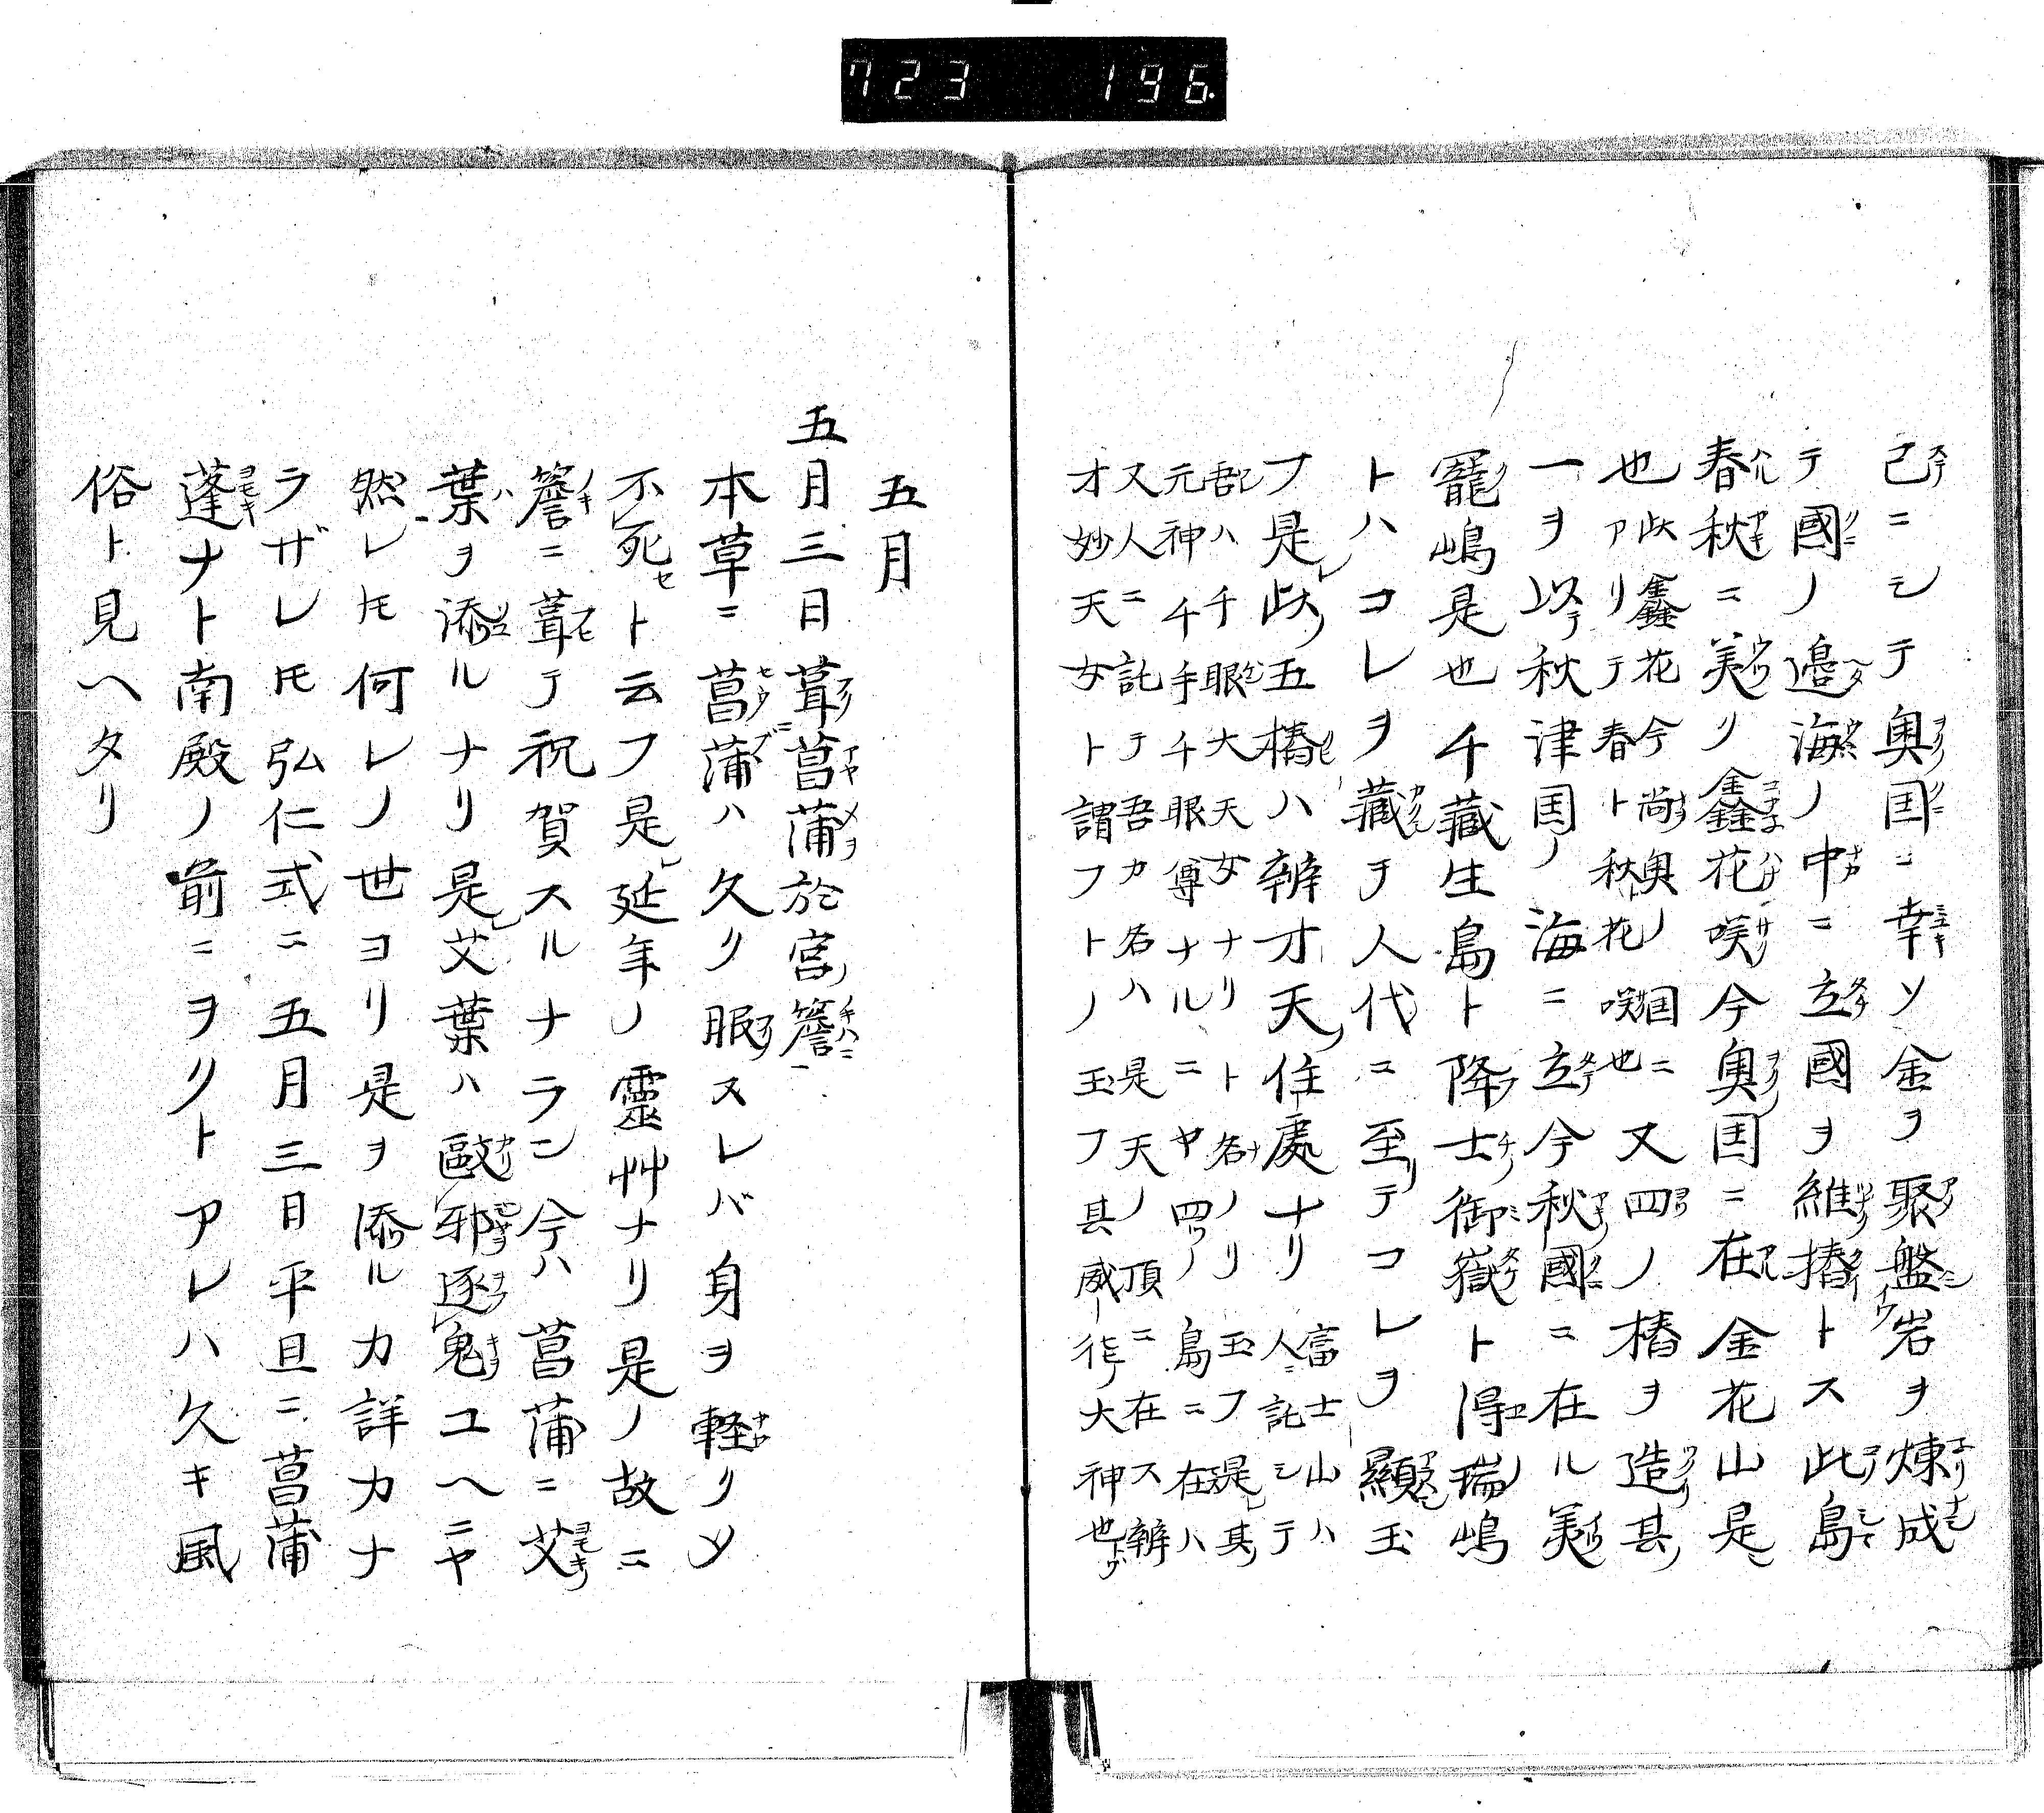 723 196.
己ニシテ奥国ニ幸ソ金ヲ聚盤岩ヲ煉成
テ國ノ邉海ノ中ニ立國ヲ維樁トス此島
春秋ニ美リ鑫花咲今奥国ニ在金花山是
也此鑫花今尚奥ノ国ニアリテ春ト秋花咲也又四ノ樁ヲ造其
一ヲ以秋津国ノ海ニ立今秋國ニ在ル美
籠嶋是也千藏生島ト降士御嶽ト得瑞嶋
トハコレヲ藏チ人代ニ至テコレヲ顯玉
フ是此五樁ハ辨才天住處ナリ富士山ハ人ニ託シテ
吾ハ千眼大天女ナリト名ノリ玉フ是其
元神千手千眼尊ナルニヤ四ノ島ニ在ハ
又人ニ託テ吾カ名ハ是天ノ頂ニ在ス辨
才妙天女ト謂フトノ玉フ其威徃大神也
五月
五月三日葺菖蒲於宮簷
本草ニ菖蒲ハ久リ服スレバ身ヲ軽リソ
不死ト云フ是延年ノ靈艸ナリ是ノ故ニ
簷ニ葺テ祝賀スルナラン今ハ菖蒲ニ艾
葉ヲ添ルナリ是艾葉ハ毆邪逐鬼ユヘニヤ
然レ𪜈何レノ世ヨリ是ヲ添ルカ詳カナ
ラザレ𪜈弘仁式ニ五月三日平旦ニ菖蒲
蓬ナト南殿ノ前ニヲリトアレハ久キ風
俗ト見ヘタリ